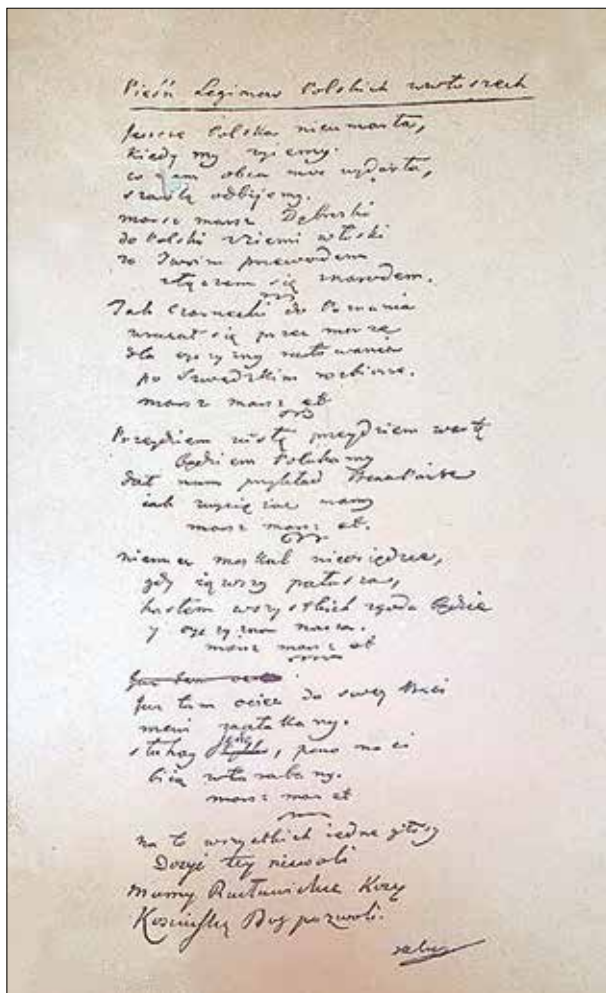 Pieśń Legionow Polskich wewłoszech
Jescze Polska nieumarła,
kiedy my zyiemy.
co nam obca moc wydarła,
szablą odbijemy.
marsz marsz Dąbroski
do Polski zziemi włoski
za Twoim przewodem
złączem się znarodem.
Jak Czarnecki do Poznania
wracał się przez morze
dla oyczyzny ratowania
po Szwedzkim rozbiorze.
marsz marsz et
Przeydziem wisłę przeydziem wartę
będziem Polakamy
dał nam przykład Bonaparte
iak zwycięzac mamy
marsz marsz et.
niemiec moskal nieosiędzie,
gdy iąwszy pałasza,
hasłem wszystkich zgoda będzie
y oyczyzna nasza.
marsz marsz et
Juz tam ociec
Juz tam ociec do swey Basi
mowi zapłakany.
słuchay ieno, pono nasi
biią wtarabany.
marsz mar et
na to wszystkich iedne głosy
Dosyć tey niewoli
mamy Racławickie Kosy
Kosciuszkę Bog pozwoli.